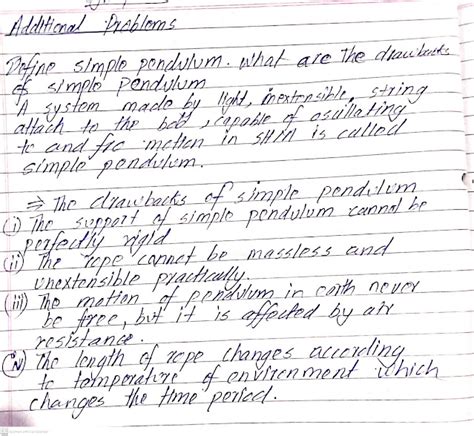 Additional Problems
Define simple pendulum. What are The drawbacks
of simple pendulum
A system made by light, inextensible, string
attach to the bob, capable of oscillating
to and fro motion in SHM is called
simple pendulum.
⇒ The drawbacks of simple pendulum
(i) The support of simple pendulum cannot be
perfectly rigid
(ii) The rope cannot be massless and
unextensible practically.
(iii) The motion of pendulum in earth never
be free, but it is affected by air
resistance.
(iv) The length of rope changes according
to temperature of environment which
changes the time period.